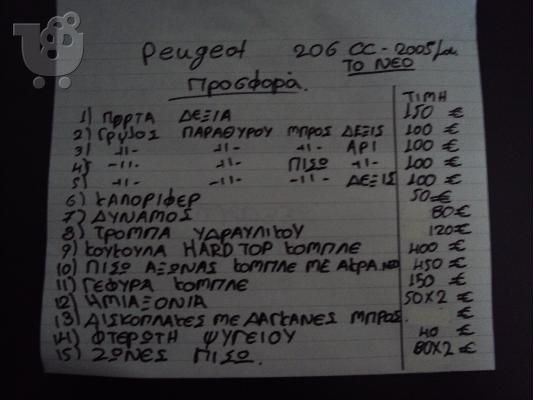 Peugeot 206 CC - 2005/μ.
ΤΟ ΝΕΟ
Προσφορά.
ΤΙΜΗ
1) ΠΟΡΤΑ ΔΕΞΙΑ 150 €
2) Γρυλος ΠΑΡΑΘΥΡΟΥ ΜΠΡΟΣ ΔΕΞΙΣ 100 €
3) -11- -11- -11- ΑΡΙ 100 €
4) -11- -11- ΠΙΣΩ -11- 100 €
5) -11- -11- -11- ΔΕΞΙΣ 100 €
6) ΚΑΛΟΡΙΦΕΡ 50 €
7) ΔΥΝΑΜΟΣ 80 €
8) ΤΡΟΜΠΑ ΥΔΡΑΥΛΙΚΟΥ 120 €
9) ΚΟΥΚΟΥΛΑ HARD TOP ΚΟΜΠΛΕ 400 €
10) ΠΙΣΩ ΑΞΩΝΑΣ ΚΟΜΠΛΕ ΜΕ ΑΚΡΑ 450 €
11) ΓΕΦΥΡΑ ΚΟΜΠΛΕ 150 €
12) ΗΜΙΑΞΟΝΙΑ 50X2 €
13) ΔΙΣΚΟΠΛΑΚΕΣ ΜΕ ΔΑΓΚΑΝΕΣ ΜΠΡΟΣ. €
14) ΦΤΕΡΩΤΗ ΨΥΓΕΙΟΥ 40 €
15) ΖΩΝΕΣ ΠΙΣΩ. 80X2 €